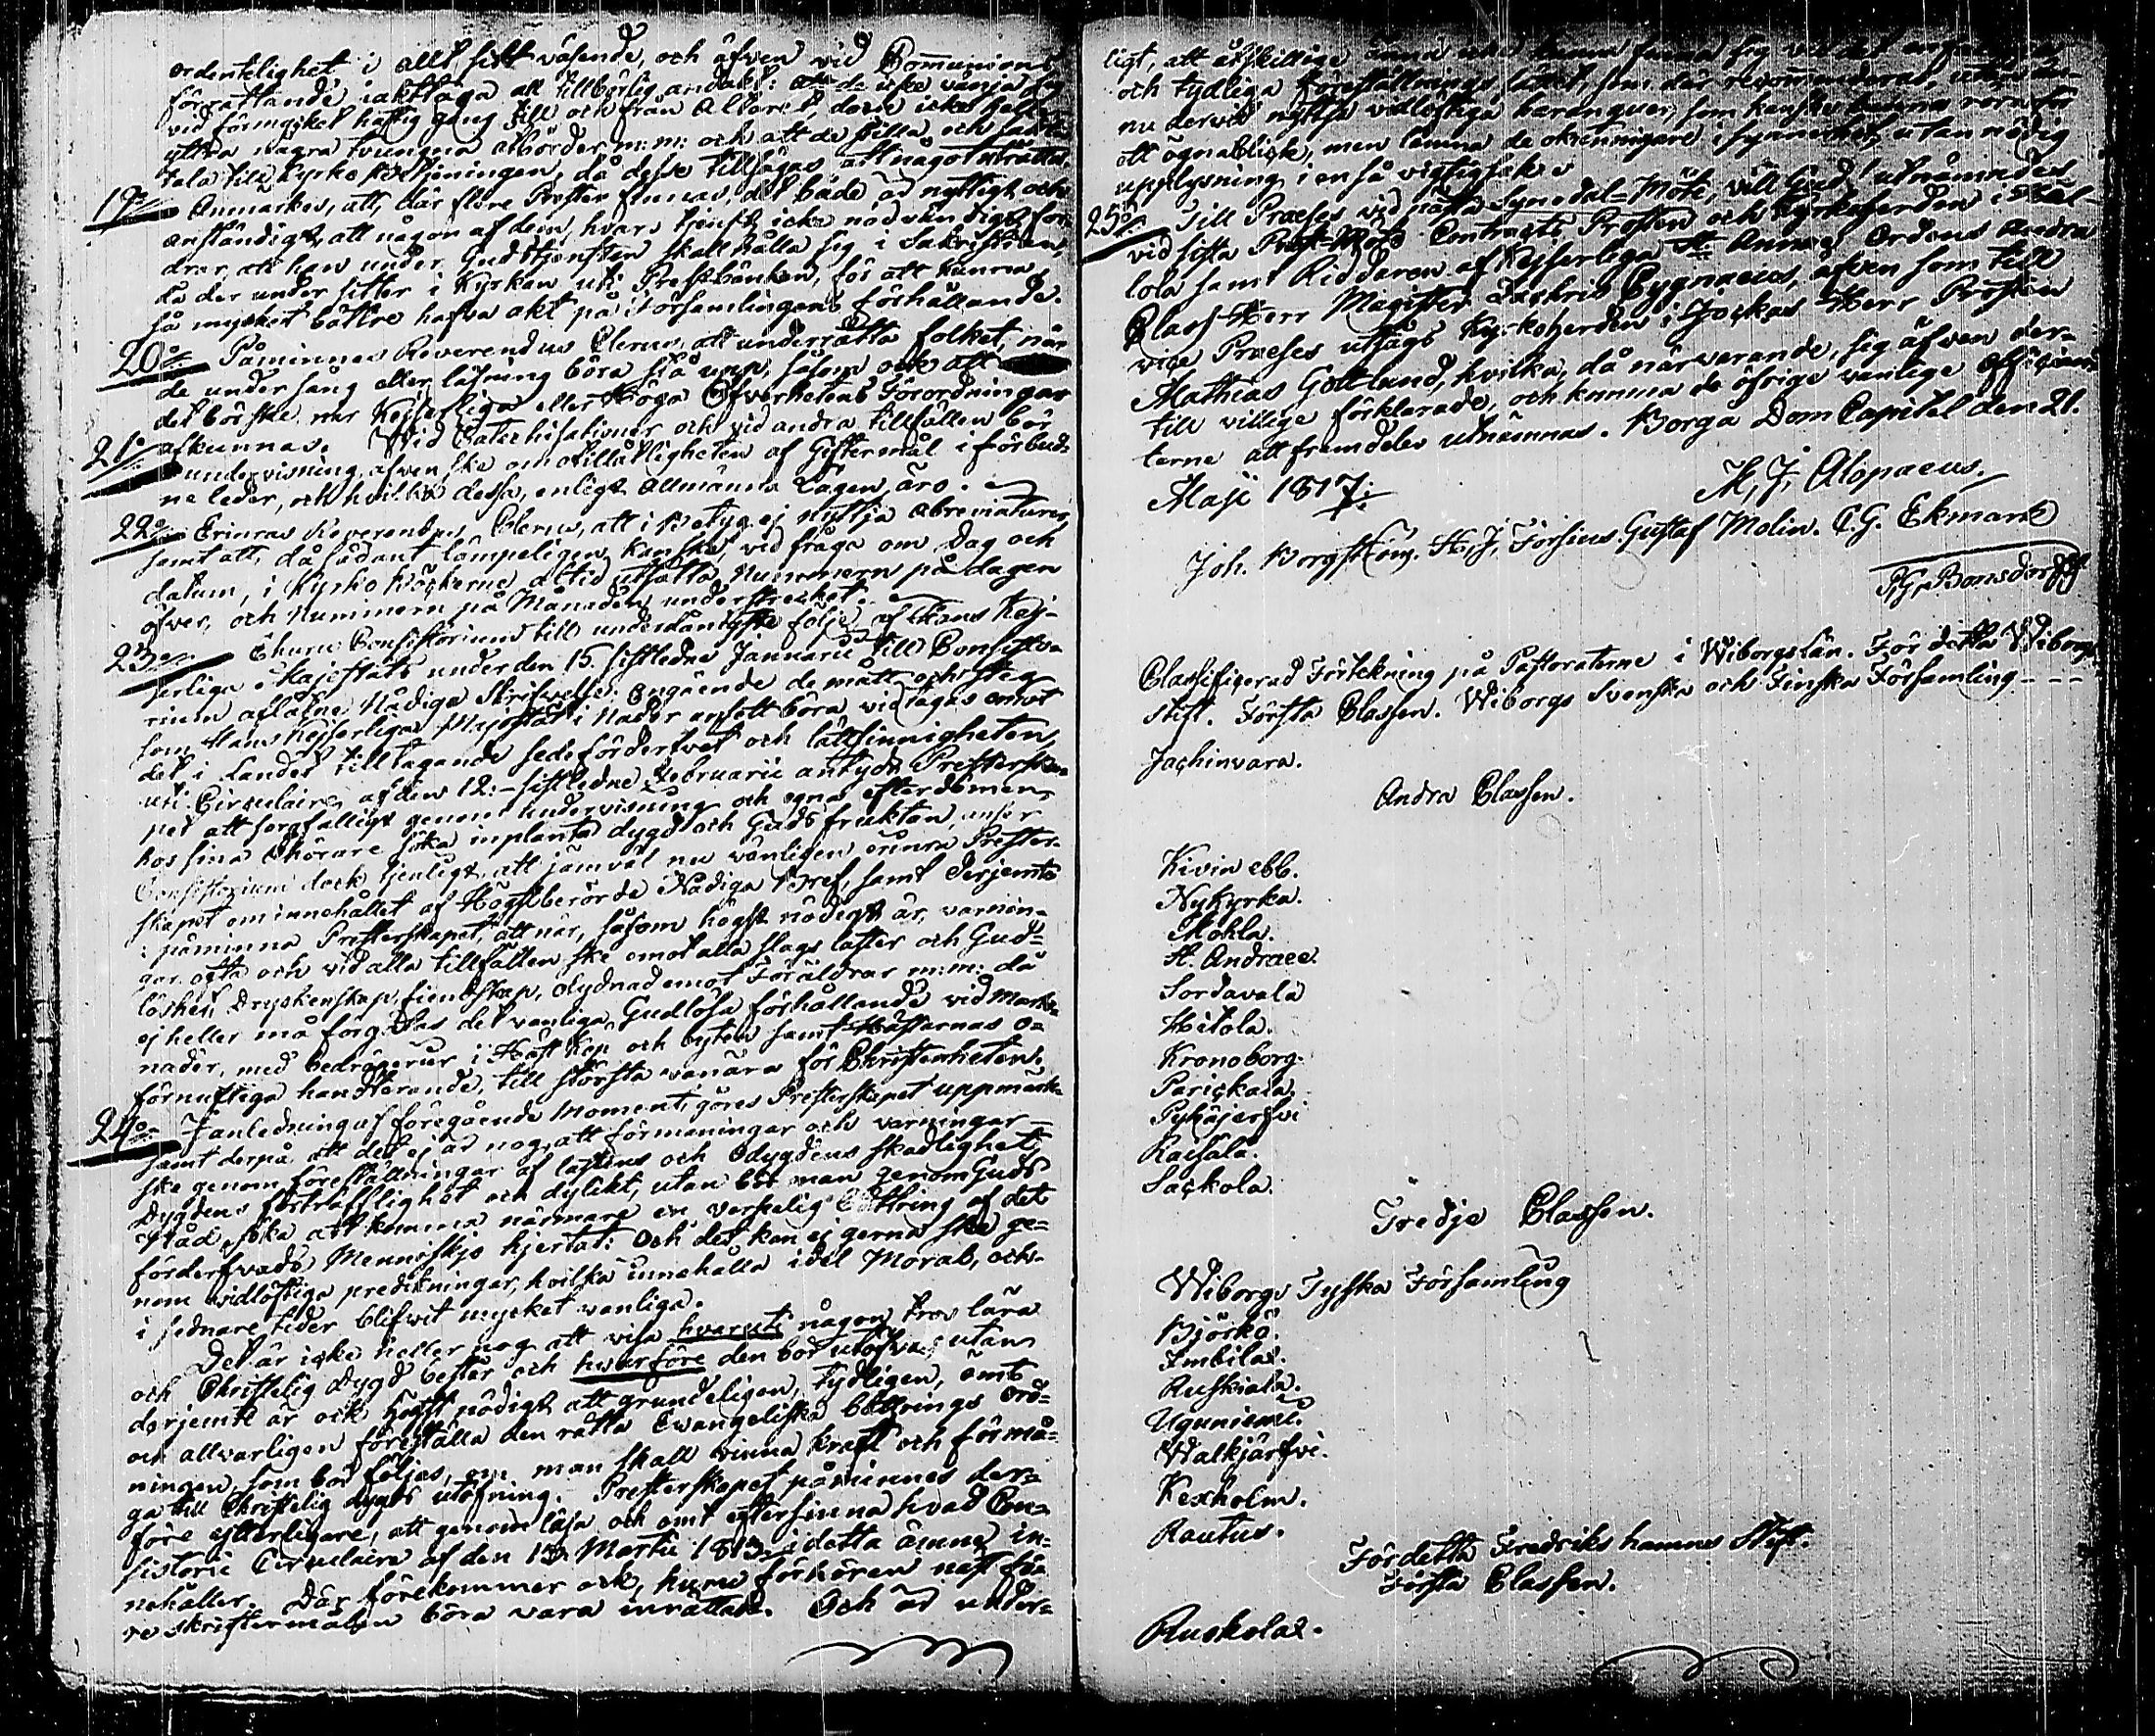 ordentelighet i allt sitt väsende, och äfven vid Communions
förrattande iakttaga all tillbörlig andakt: att de icke vänja sig
vid för mycket häftig gång till och från Altaret, deruti icke heller
yttra några tvungna åtbörder m:m: och att de stilla och sakta
tala till Kyrkobetjeningen, då desse tillsägas att något uträtta.
19o Anmärkes, att, där flere Prester finnas, det både är nyttigt och
anständigt, att någon af dem, hvars tjenst icke nödvändigt for-
drar, att han under Gudstjensten skall hålla sig i Sakristian,
då der under sitter i Kyrkan uti Prestbänken, för att kunna
så mycket bättre hafva akt på Församlingens förhållande.
20o Påminnes Reverendus Clerus, att underrätta folket, när
de under sång eller läsning böra stå upp, såsom ock att
det bör ske när Kejserliga eller Höga Öfverhetens Förordningar
afkunnas.
21o Wid Catechisationer och vid andra tillfällen bör
undervisning äfven ske om otillåtligheten af Giftermål i förbud-
ne leder, och hvilka dessa, enligt Allmänna Lagen, äro.
22o Erinras Reverendus Clerus, att i Betyg ej nyttja abreviaturer
samt att, då sådant lämpeligen kan ske, vid fråga om Dag och
datum, i Kyrko Böckerne alltid utsätta Nummern på dagen
öfver, och Nummern på Månaden under strecket.
23o Ehuru Consistorium till underdånigste följe af Hans Kej-
serliga Majestäts under den 15. sistledne Januarii till Consisto-
rium aflåtne Nådiga Skrifvelse, angående de mått och steg
som Hans Kejserliga Majestät i Nåder ansett böra vidtagas emot
det i Landet tilltagande sedeförderfvet och lättsinnigheten,
uti Circulaire af den 12. sistledne Februarii antydt Presterska-
pet att sorgfälligt genom undervisning och egna efterdömen
hos sina Åhörare söka inplanta dygd och Guds fruktan, anser
Consistorium dock tjenligt, att jämväl nu vänligen erinra Prester-
skapet om innehållet af Högstberörde Nådiga Bref, samt derjemte
påminna Presterskapet, att när, såsom högst nödigt är, varnin-
gar ofta och vid alla tillfällen ske emot alla slags laster och Gud-
löshet, Dryckenskap, fiendskap, olydnad emot Föräldrar m:m: då
ej heller må förgätas det vanliga Gudlösa förhållande vid Mark-
nader, med bedrägerier i Häst Köp och byten samt Hästarnas o-
förnuftiga handterande, till största vanära för Christenheten.
24o I anledning af föregående Moment, göres Presterskapet uppmärk-
samt derpå att det ej är nog, att förmaningar och varningar
ske genom föreställningar af lastens och Odygdens skadlighet,
Dygdens förträfflighet och dylikt, utan bör man genom Guds
Nåd söka att komma närmare en verkelig bättring af det
förderfvade Menniskjo hjertat: Och det kan ej gerna ske ge-
nom vidlöftiga predikningar, hvilka innehålla idel Moral, och
i sednare tider blifvit mycket vanliga.
Det är icke heller nog att visa hvaruti någon tros lära
och Christelig dygd består och hvarföre den bör utöfvas; utan
derjemte är ock högst nödigt att grundeligen, tydligen, ömt
och allvarligen föreställa den rätta Evangeliska bättrings ord-
ningen, som bör följas, om man skall vinna kraft och förmå-
ga till Christelig dygds utöfning. Presterskapet påminnes der-
före ytterligare, att genom läsa och ömt eftersinna hvad Con-
sistorii Circulaire af den 13. Martii 1813. i detta ämne in-
nehåller. Där förekommer ock, huru förhören näst fö-
re skriftermålen böra vara inrättade. Och är under-
ligt, att åtskillige
och tydliga Föreställnings sättet, som där recommenderas, utan än-
nu dervid nyttja vidlöftiga haranguer, som kanske kunna röra för
ett ögnablick, men lämna de okunnigare i synnerhet, utan nödig
upplysning i en så vigtig sak.
25o Till Præses vid nästa Synodal-Möte, vill Gud! utnämndes
vid sista Prest-Möte Contracts Prosten och Kyrkoherden i
lola samt Riddaren af Kejserliga St Annæ Ordens andra
Class Herr Magister Zachris Cygnæus, äfven som till
vice Præses utsågs Kyrkoherden i Jockas Herr Prosten
Mathias Gottlund, hvilka, då närvarande, sig äfven der-
till villige förklarade, och kunna de öfrige vanlige offician-
terne att framdeles utnämnas. Borgå Dom Capitel den 21.
Maji 1817.
M. J. Alopaeus.
Joh. Borgström. H. J. Forsius. Gustaf Molin. C. G. Ekmark
P. G. Bonsdorff
Classificerad Förtekning på Pastoraterne i Wiborgs län. För detta Wiborgs
stift. Första Classen. Wiborgs Svenska och Finska Församling - - -
Jachimvara.
Andra Classen.
Kivinebb.
Nykyrka.
Mohla.
St. Andraee.
Sordavala
Hitola.
Kronoborg.
Parickala.
Pyhäjerfvi
Raisala.
Sackola.
Tredje Classen.
Wiborgs Tyska Församling
Björkö.
Imbilax.
Ruskiala.
Uguniemi.
Walkjärfvi.
Kexholm.
Rautus.
För detta Fredriks hamns Stift.
Första Classen.
Ruokolax.